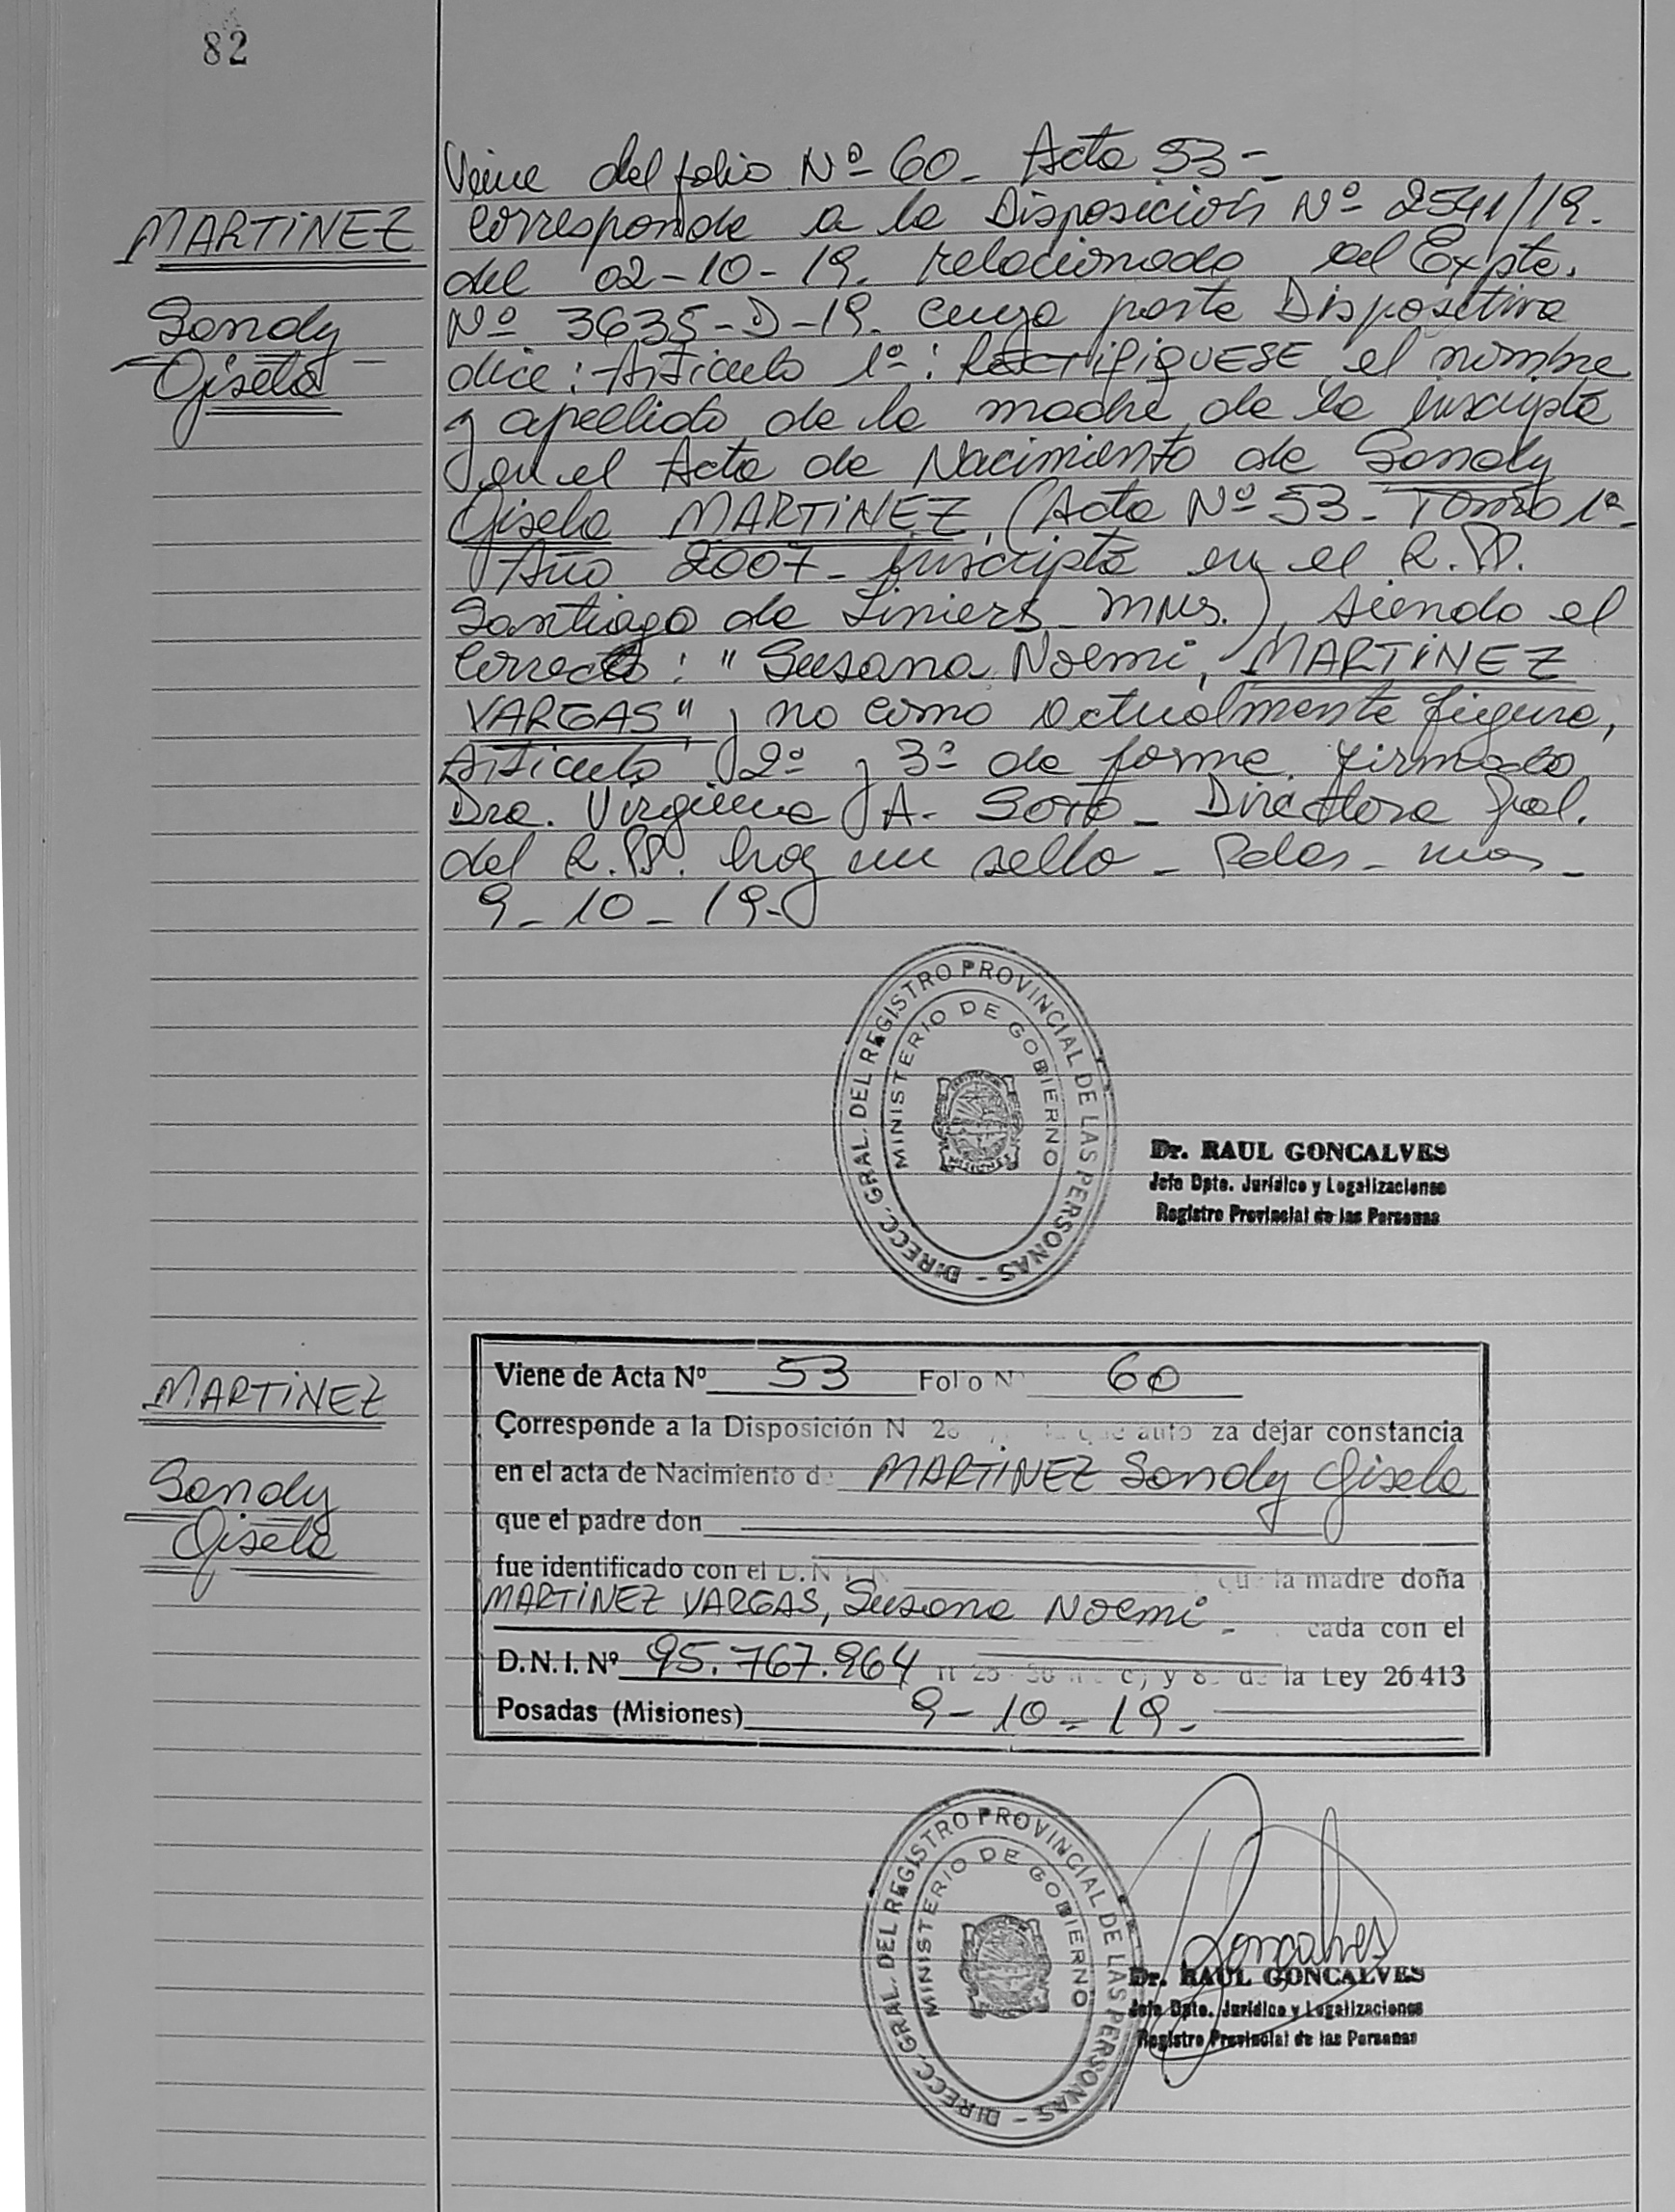 82
Viene del folio Nº 60_ Acta 53-
MARTINEZ
Sandy
Gisela
corresponde a la Disposición Nº 2541/19.
del 02-10-19. relacionado al Expte.
Nº 3635-D-19. cuya parte Dispositiva
dice: Artículo 1º: RECTIFIQUESE el nombre
y apellido de la madre de la inscripta
en el Acta de Nacimiento de Sandy
Gisela MARTINEZ, (Acta Nº 53_ Tomo 1º_
Año 2007_ Inscripta en el R.PP.
Santiago de Liniers_ Mns.), siendo el
correcto: "Susana Noemi, MARTINEZ
VARGAS" y no como actualmente figura,
Artículo 2º y 3º de forma. firmado
Dra. Virginia A. Soto_ Directora Gral.
del R.PP. hay un sello_ Pdas_ Mns_
9_10_19_
DIRECC. GRAL. DEL REGISTRO PROVINCIAL DE LAS PERSONAS -
MINISTERIO DE GOBIERNO
Dr. RAUL GONCALVES
Jefe Dpto. Jurídico y Legalizaciones
Registro Provincial de las Personas
MARTINEZ
Sandy
Gisela
Viene de Acta Nº 53 Folio N 60
Corresponde a la Disposición N que autoriza dejar constancia
en el acta de Nacimiento de MARTINEZ Sandy Gisela
que el padre don
fue identificado con el D.N.I. que la madre doña
MARTINEZ VARGAS, Susana Noemi - cada con el
D.N.I. Nº 95.767.964 y de la Ley 26.413
Posadas (Misiones) 9-10-19-
DIRECC. GRAL. DEL REGISTRO PROVINCIAL DE LAS PERSONAS -
MINISTERIO DE GOBIERNO
Goncalves
Dr. RAUL GONCALVES
Jefe Dpto. Jurídico y Legalizaciones
Registro Provincial de las Personas